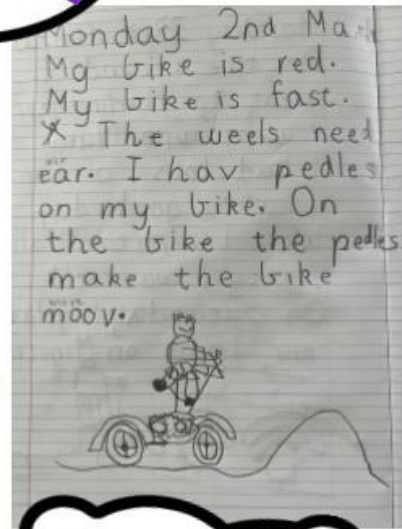 Monday 2nd Ma
My bike is red.
My bike is fast.
The weels need
air
ear. I hav pedles
on my bike. On
the bike the pedles
make the bike
move
moov.